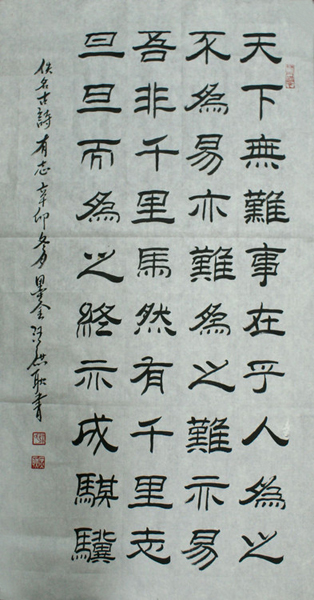 天下無難事在乎人為之
不為易亦難為之難亦易
吾非千里馬然有千里志
旦旦而為之終亦成騏驥
佚名古詩有志辛卯冬月書